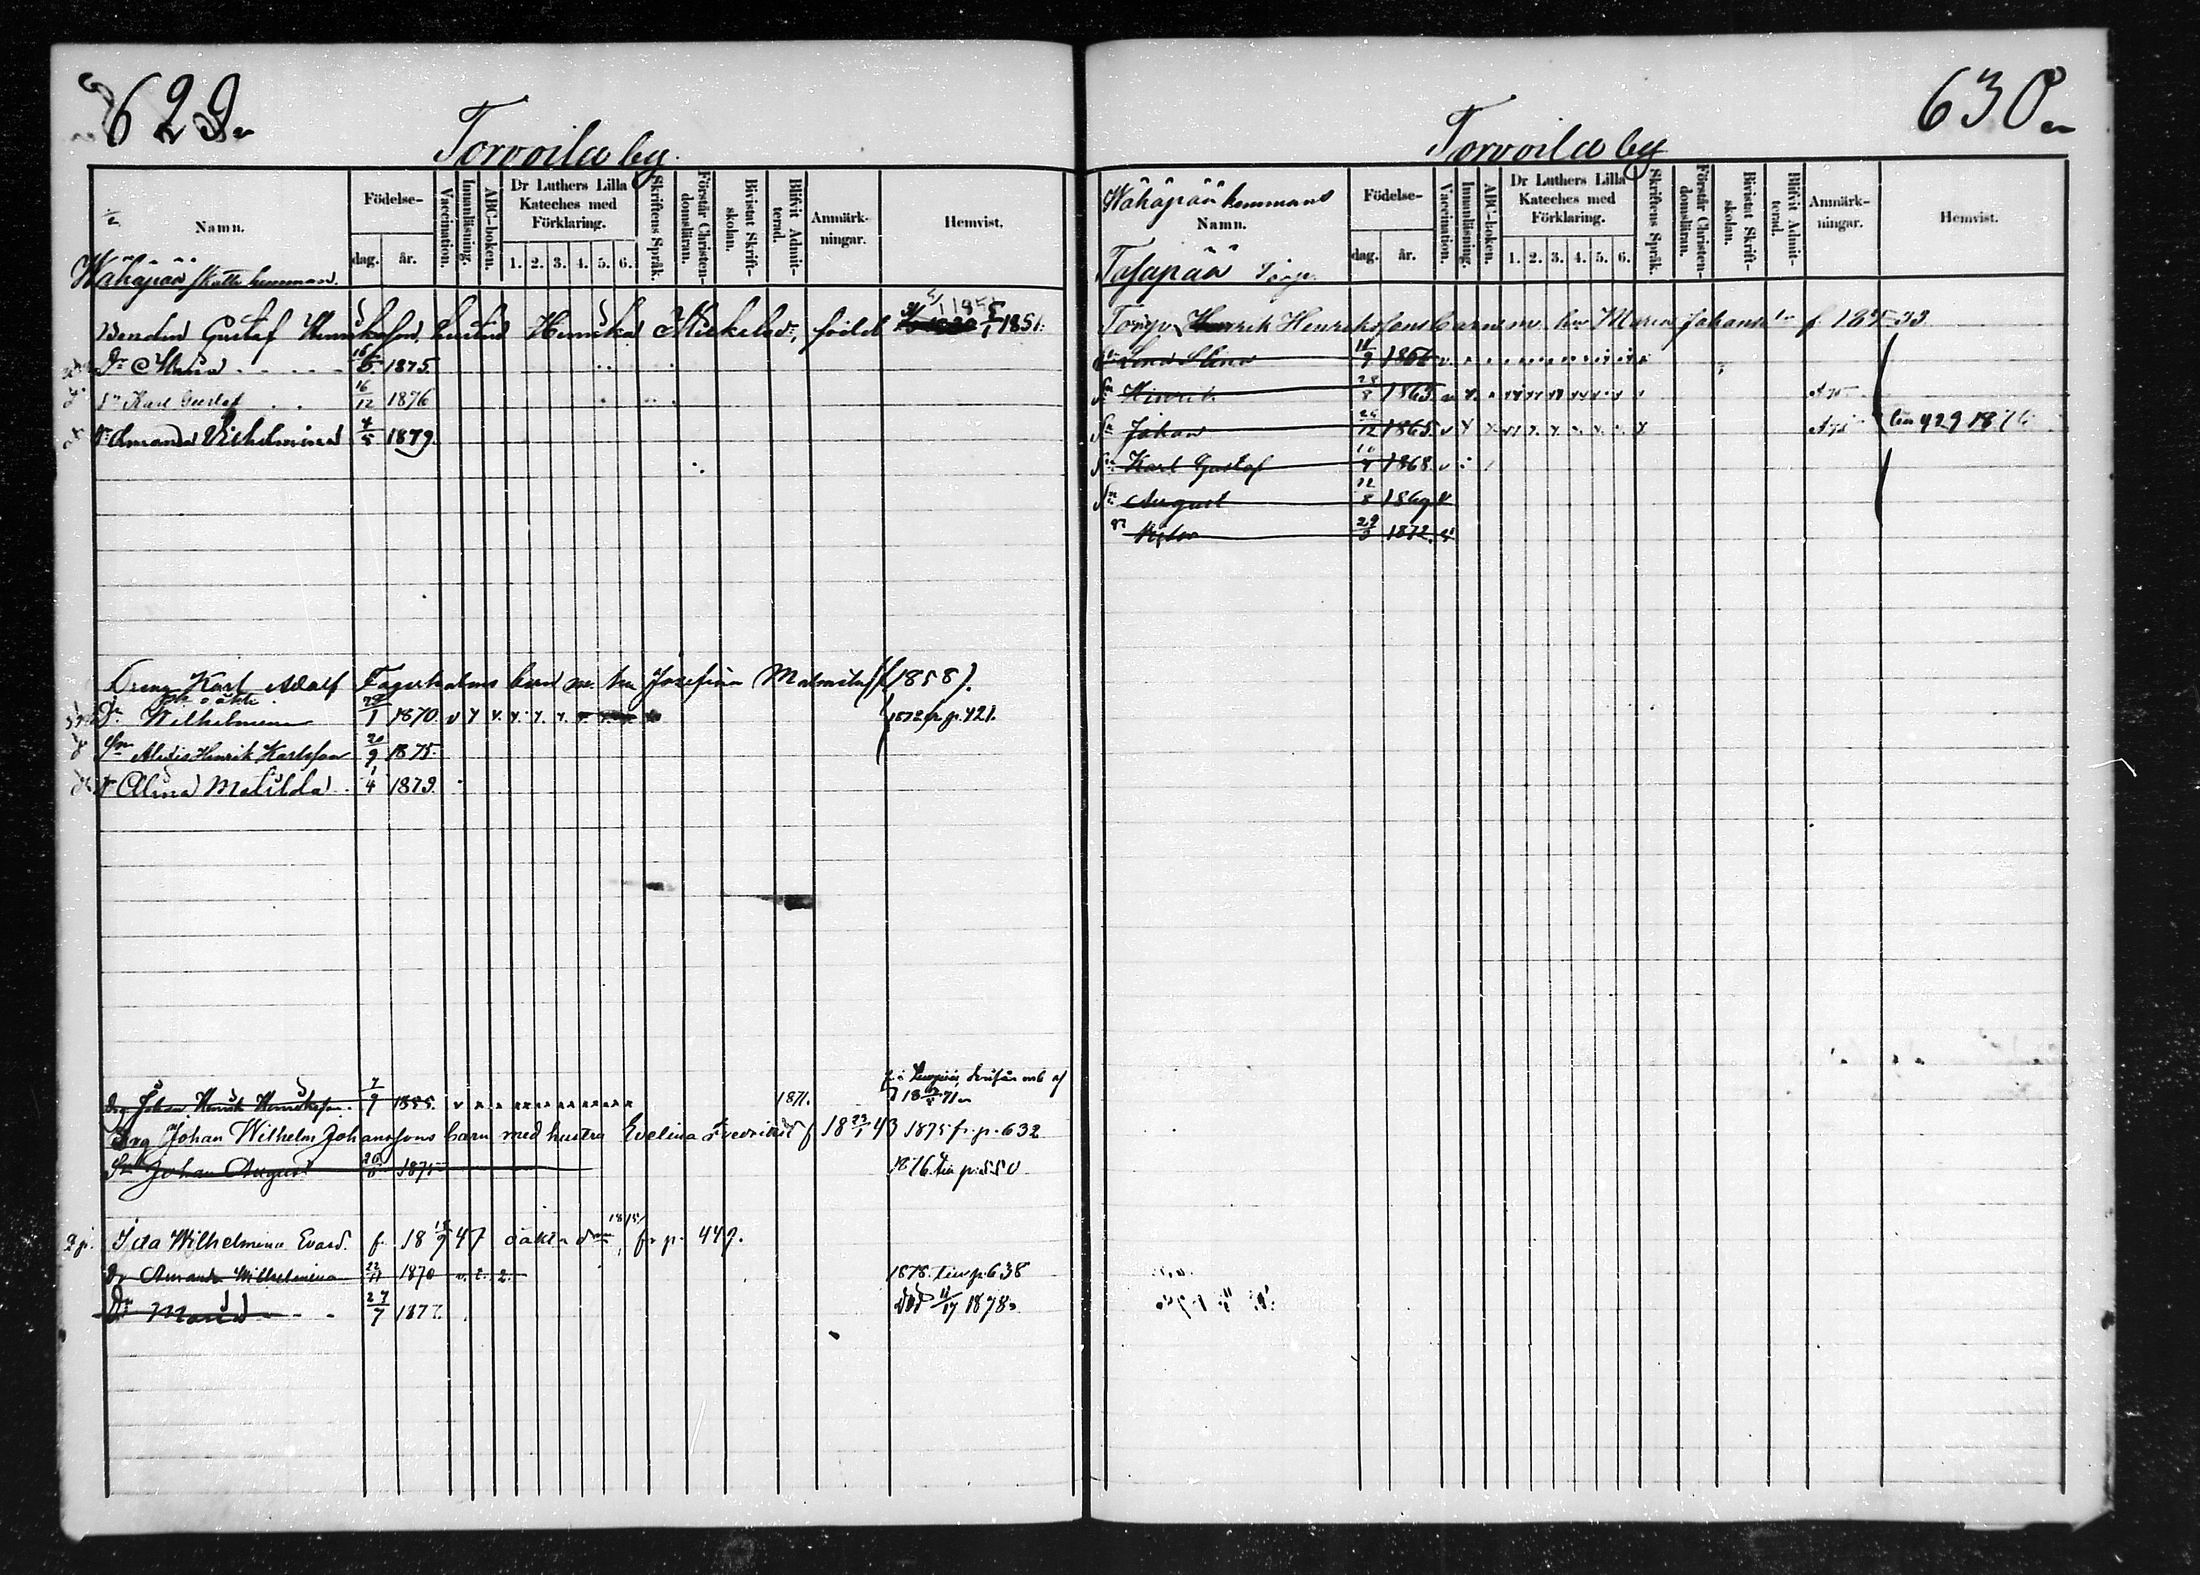 629.
Torvoila by.
Namn. Födelse- dag. år. Vaccination. Innanläsning. ABC-boken. Dr Luthers Lilla Kateches med Förklaring. 1. 2. 3. 4. 5. 6. Skriftens Språk. Förstår Christendomsläran. Bivistat Skriftskolan. Blifvit Admitterad. Anmärkningar. Hemvist.
Wähäpää skatte hemman.
Bonden Gustaf Henriksson, hustru Henrika Mickelsdr, född 5/1 1851.
Dr Maria 1875.
Sn Karl Gustaf 16/12 1876
Dr Amanda Vilhelmina 4/5 1879.
Dreng Karl Adolf Fagerholms barn m. hu Josefina (1858).
Dr Wilhelmina 1870 1872 fr p. 421.
Sn Alexis Henrik Karlsson 20/9 1875.
Dr Alma Matilda 1/4 1879.
Drg Johan Henrik Henriksson. 7/9 1855. 1871.
Drg Johan Wilhelm Johanssons barn med hustru Evelina Fredrika f 18 23/1 43 1875 fr. p. 632
Sn Johan August 1875 1876 till p. 550
Ida Wilhelmina Evard. f. 18 47 oäkta fr p. 449.
Dr Amanda Wilhelmina 22/11 1870 1878 till p. 638
Dr Maria 27/7 1877. död 1878.
630.
Torvoila by
Wähäpää hemmans
Namn. Födelse- dag. år. Vaccination. Innanläsning. ABC-boken. Dr Luthers Lilla Kateches med Förklaring. 1. 2. 3. 4. 5. 6. Skriftens Språk. Förstår Christendomsläran. Bivistat Skriftskolan. Blifvit Admitterad. Anmärkningar. Hemvist.
Torpe Henrik Henrikssons barn m. hu Maria Johansdr f.
1862
Sn Henrik 1863
Sn Johan 1865 429 1876
Sn Karl Gustaf 1868
Sn August 12/8 1869
1872